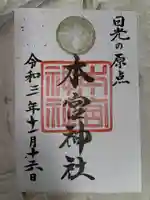 日光の原点
本宮神社
令和三年十一月十六日